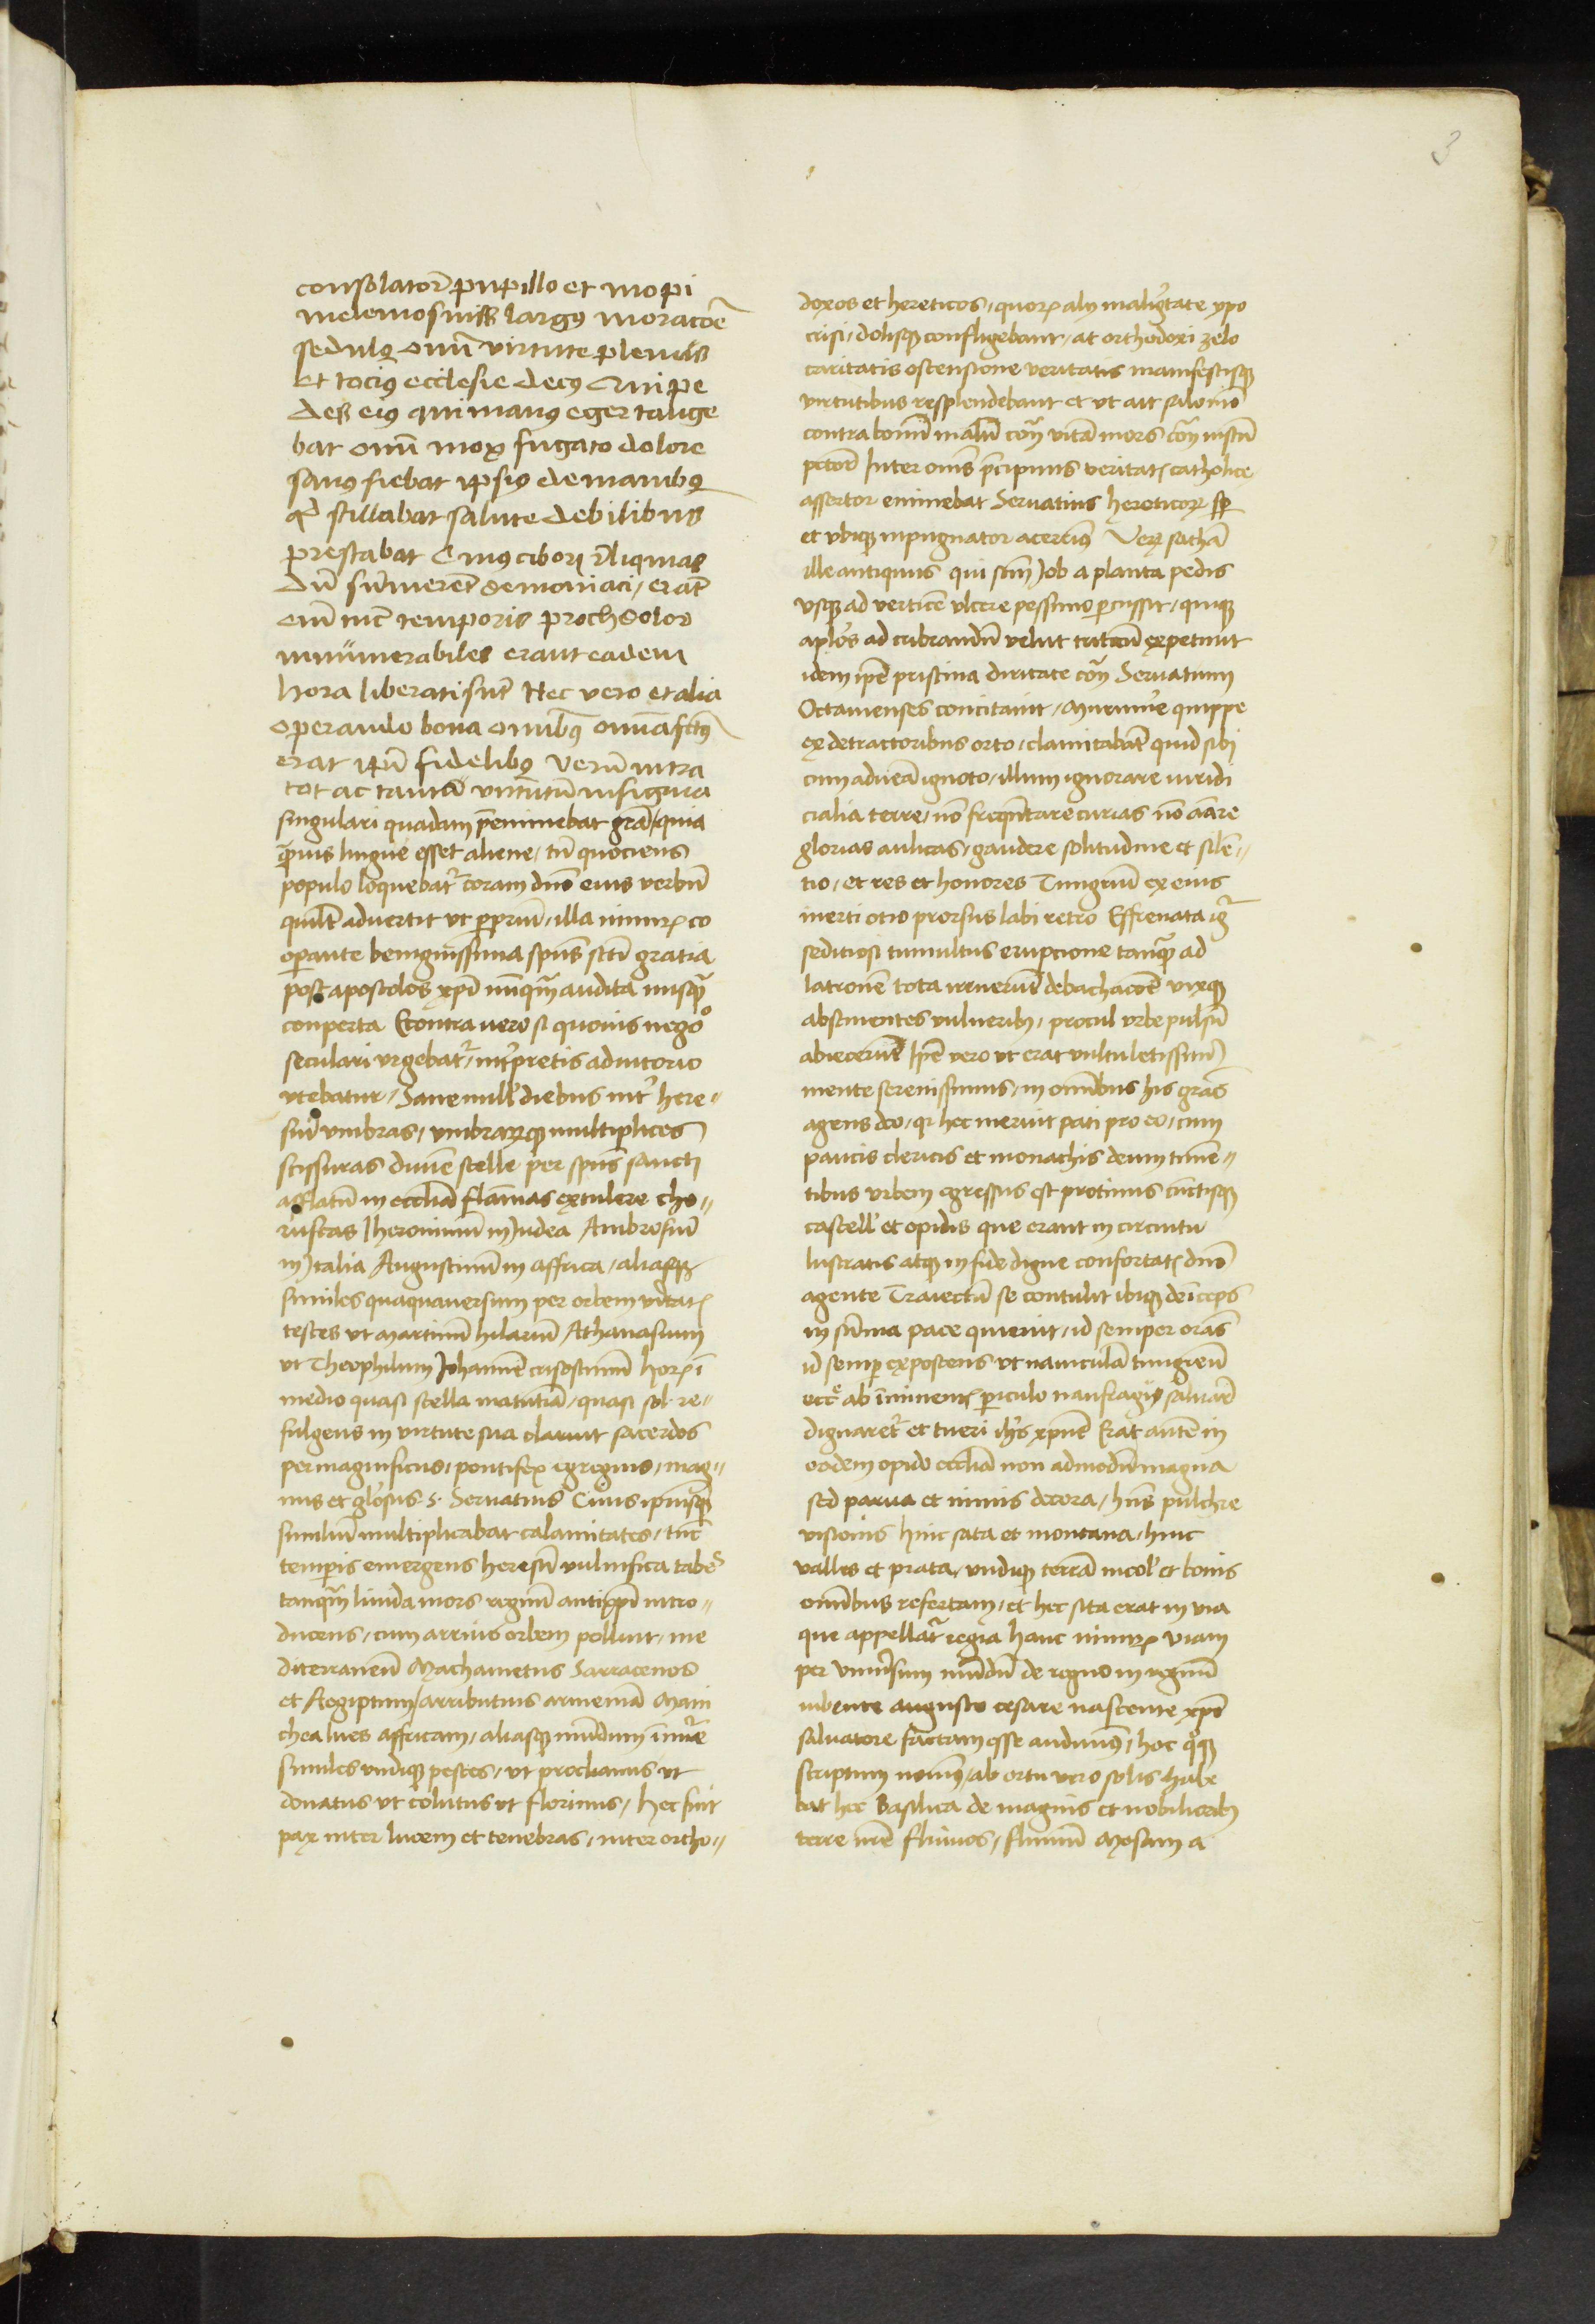 3
consolator pupillo et inopi
in elemosinis largus in oracōe
sedulus omī virtute plenus
et tocius ecclesie decus Qui pe
des eius qui manus eger tange
bat omī mox fugato dolore
sanus fiebat ipsius de manibus
qd stillabat salute debilibus
prestabat Cuius ciborum reliquias
dū sūmerēt demoniaci / erāt
enī illic temporis proch dolor
innūmerabiles erant eadem
hora liberati sūt Hec vero et alia
operando bona omībus omīa fctus
erat xpī fidelibus verū intra
tot ac tanta virtutū insignia
singulari quadam preeminebat grā / quia
quis lingue esset aliene / tū quociens
populo loquebatur coram dno eius verbū
quilt advertit ut propriū / illa nimirum co
operante benignissima spūs scti gratia
post apostolos xpī nūquam audita nusquam
conperta Econtra uero si quouis nego
seculari urgebatur / interpretis adiutorio
utebatur / Sane nullis diebus inter here-
siū umbras / umbrarumque multiplices
scissuras diuine stelle per spūs sancti
afflatū in ecclīa flāmas extulere cho-
ruscas Iheronimū in Iudea Ambrosiū
in Italia Augustinū in affrica / aliasque
similes quaquauersum per orbem veritatis
testes ut martinū hilariū Athanasium
ut Theophilum Johannē crisostimū horum ī
medio quasi stella matutīa / quasi sol re-
fulgens in virtute sua claruit sacerdos
permagnificus / pontifex egregius / mag-
nus et glosus .S. Seruatius Cuius ipiusque
similiū multiplicabat calamitates / tūc
temporis emergens heresiū vulnifica tabes
tanquam liuida mors regnū antixpī intro-
ducens / cum arrius orbem polluit / me
diterraneū Machametus Sarracenos
et Aegiptum / arributius armeniā Mani
chea lues affricam / aliasque mūdum
similes undique pestes / ut proclianus ut
donatus ut colutus ut florinus / hec fuit
pax inter lucem et tenebras / inter ortho-
doxos et hereticos / quorum alij malignitate ypo
crisi / dolisque confligebant / at orthodoxi zelo
caritatis ostensione veritatis manifestisque
virtutibus resplendebant et ut ait salomo
contra bonū malū contra vitā mors contra iustū
pctor Inter omīs precipuus veritatis catholice
assertor eminebat Seruatius hereticorum semper
et ubique inpugnator acerrius Verum sathā
ille antiquus qui scm Job a planta pedis
usque ad verticē ulcere pessimo percussit / quique
aplos ad cribrandū velut triticū expetiuit
idem ipe pristina diritate contra Seruatium
Octauienses concitauit / Murmure quippe
ex detractoribus orto / clamitabāt quid sibi
cum aduena ignoto / illum ignorare iuridi
cialia terre / nō frequentare curias nō amare
glorias aulicas / gaudere solitudine et silē-
tio / et res et honores Tungrium ex eius
inerti otio prorsus labi retro Effrenata igitur
seditiosi tumultus erupcione tanquam ad
latronē tota irruerūt debachacōe vixque
abstinentes vulneribus / procul urbe pulsū
abiecerūt Ipe vero ut erat vultu letissimus
mente serenissimus / in omībus his grās
agens deo / quia hec meruit pati pro eo / cum
paucis clericis et monachis deum timē-
tibus urbem egressus est protinus cūctisque
castellis et opidis que erant in circuitu
lustratis atque in fide digne confortatis dno
agente Traiectū se contulit ibique deīceps
in sūma pace quieuit / id semper orās
id semper exposcens ut nauiculā tungrēsiū
ecce ab īminentis periculo naufragij saluare
dignaretur et tueri ihs xpus Erat autē in
eodem opido ecclīa non admodū magna
sed parua et nimis decora / hūs pulchre
visionis hinc sata et montana / hinc
valles et prata / undique terrā incolis et bonis
omībus refertam / et hec sita erat in via
que appellatur regia hanc nimirum viam
per uniuersum mūdū de regno in regnū
iubente augusto cesare nascente xpo
saluatore factam esse audiuimus / hoc quoque
scriptum nouimus / ab ortu uero solis habe
bat hec Basilica de magnis et nobilioribus
terre nre fluuios / fluuiū Mosam a